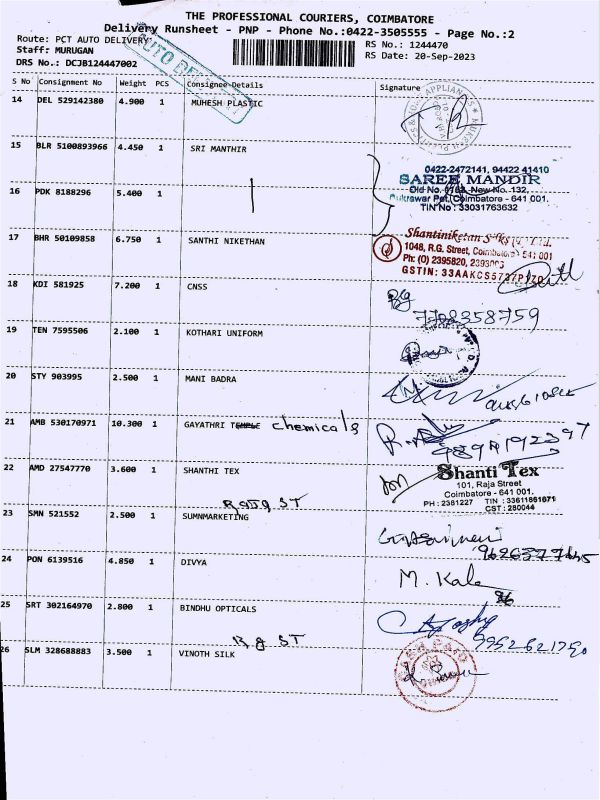 THE PROFESSIONAL COURIERS, COIMBATORE
Delivery Runsheet - PNP - Phone No.:0422-3505555 - Page No.:2
Route: PCT AUTO DELIVERY
RS No.: 1244470
Staff: MURUGAN
RS Date: 20-Sep-2023
DRS No.: DCJB124447002
AUTO DELIVERY
S No Consignment No Weight PCS Consignee Details Signature
14 DEL 529142380 4.900 1 MUHESH PLASTIC
15 BLR 5100893966 4.450 1 SRI MANTHIR
0422-2472141, 94422 41410
SAREE MANDIR
Old No. New No. 132,
Coimbatore - 641 001.
TIN No : 33031763632
16 PDK 8188296 5.400 1
17 BHR 50109858 6.750 1 SANTHI NIKETHAN
Shantiniketan Silks Ltd.
1048, R.G. Street, Coimbatore - 641 001
Ph: (O) 2395820,
GSTIN: 33AAKCS5737P1ZO
18 KDI 581925 7.200 1 CNSS
7708358759
19 TEN 7595506 2.100 1 KOTHARI UNIFORM
20 STY 903995 2.500 1 MANI BADRA
21 AMB 530170971 10.300 1 GAYATHRI TEMPLE chemicals
22 AMD 27547770 3.600 1 SHANTHI TEX
Shanti Tex
101, Raja Street
Coimbatore - 641 001.
PH : 2381227 TIN : 33611861671
CST : 280044
Raja ST
23 SMN 521552 2.500 1 SUMNMARKETING
24 PON 6139516 4.850 1 DIVYA
M. Kala
25 SRT 302164970 2.800 1 BINDHU OPTICALS
9952621750
R g ST
26 SLM 328688883 3.500 1 VINOTH SILK